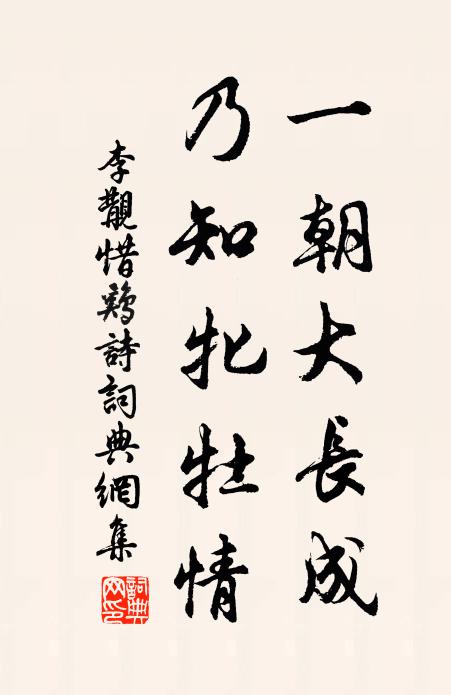 一朝大長成
乃知牝牡情
李覯惜鷄詩詞典網集
詞典网印